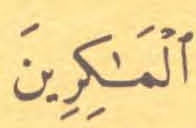 ٱلۡمَـٰكِرِينَ